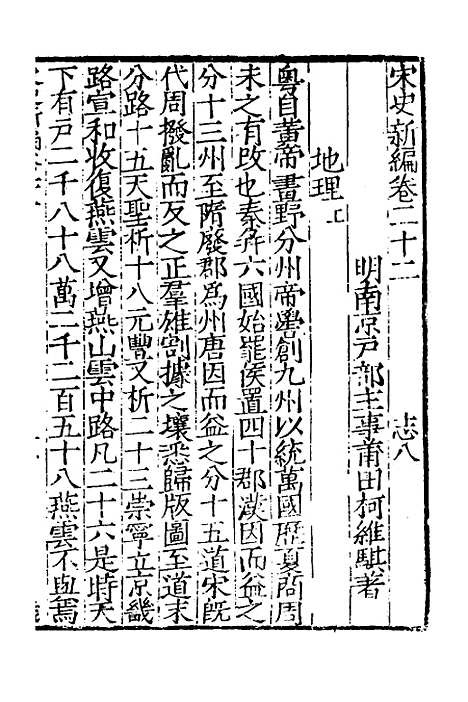 宋史新編卷二十二　志八
明南京戸部主事莆田柯維騏著
地理上
粵自黃帝畫野分州帝嚳創九州以統萬國歷夏商周
未之有改也秦并六國始罷侯置四十郡漢因而益之
分十三州至隋廢郡爲州唐因而益之分十五道宋旣
代周撥亂而反之正羣雄割據之壤悉歸版圖至道末
分路十五天聖析十八元豐又析二十三崇寧立京畿
路宣和收復燕雲又增燕山雲中路凡二十六是時天
下有戸二千八十八萬二千二百五十八燕雲不與焉